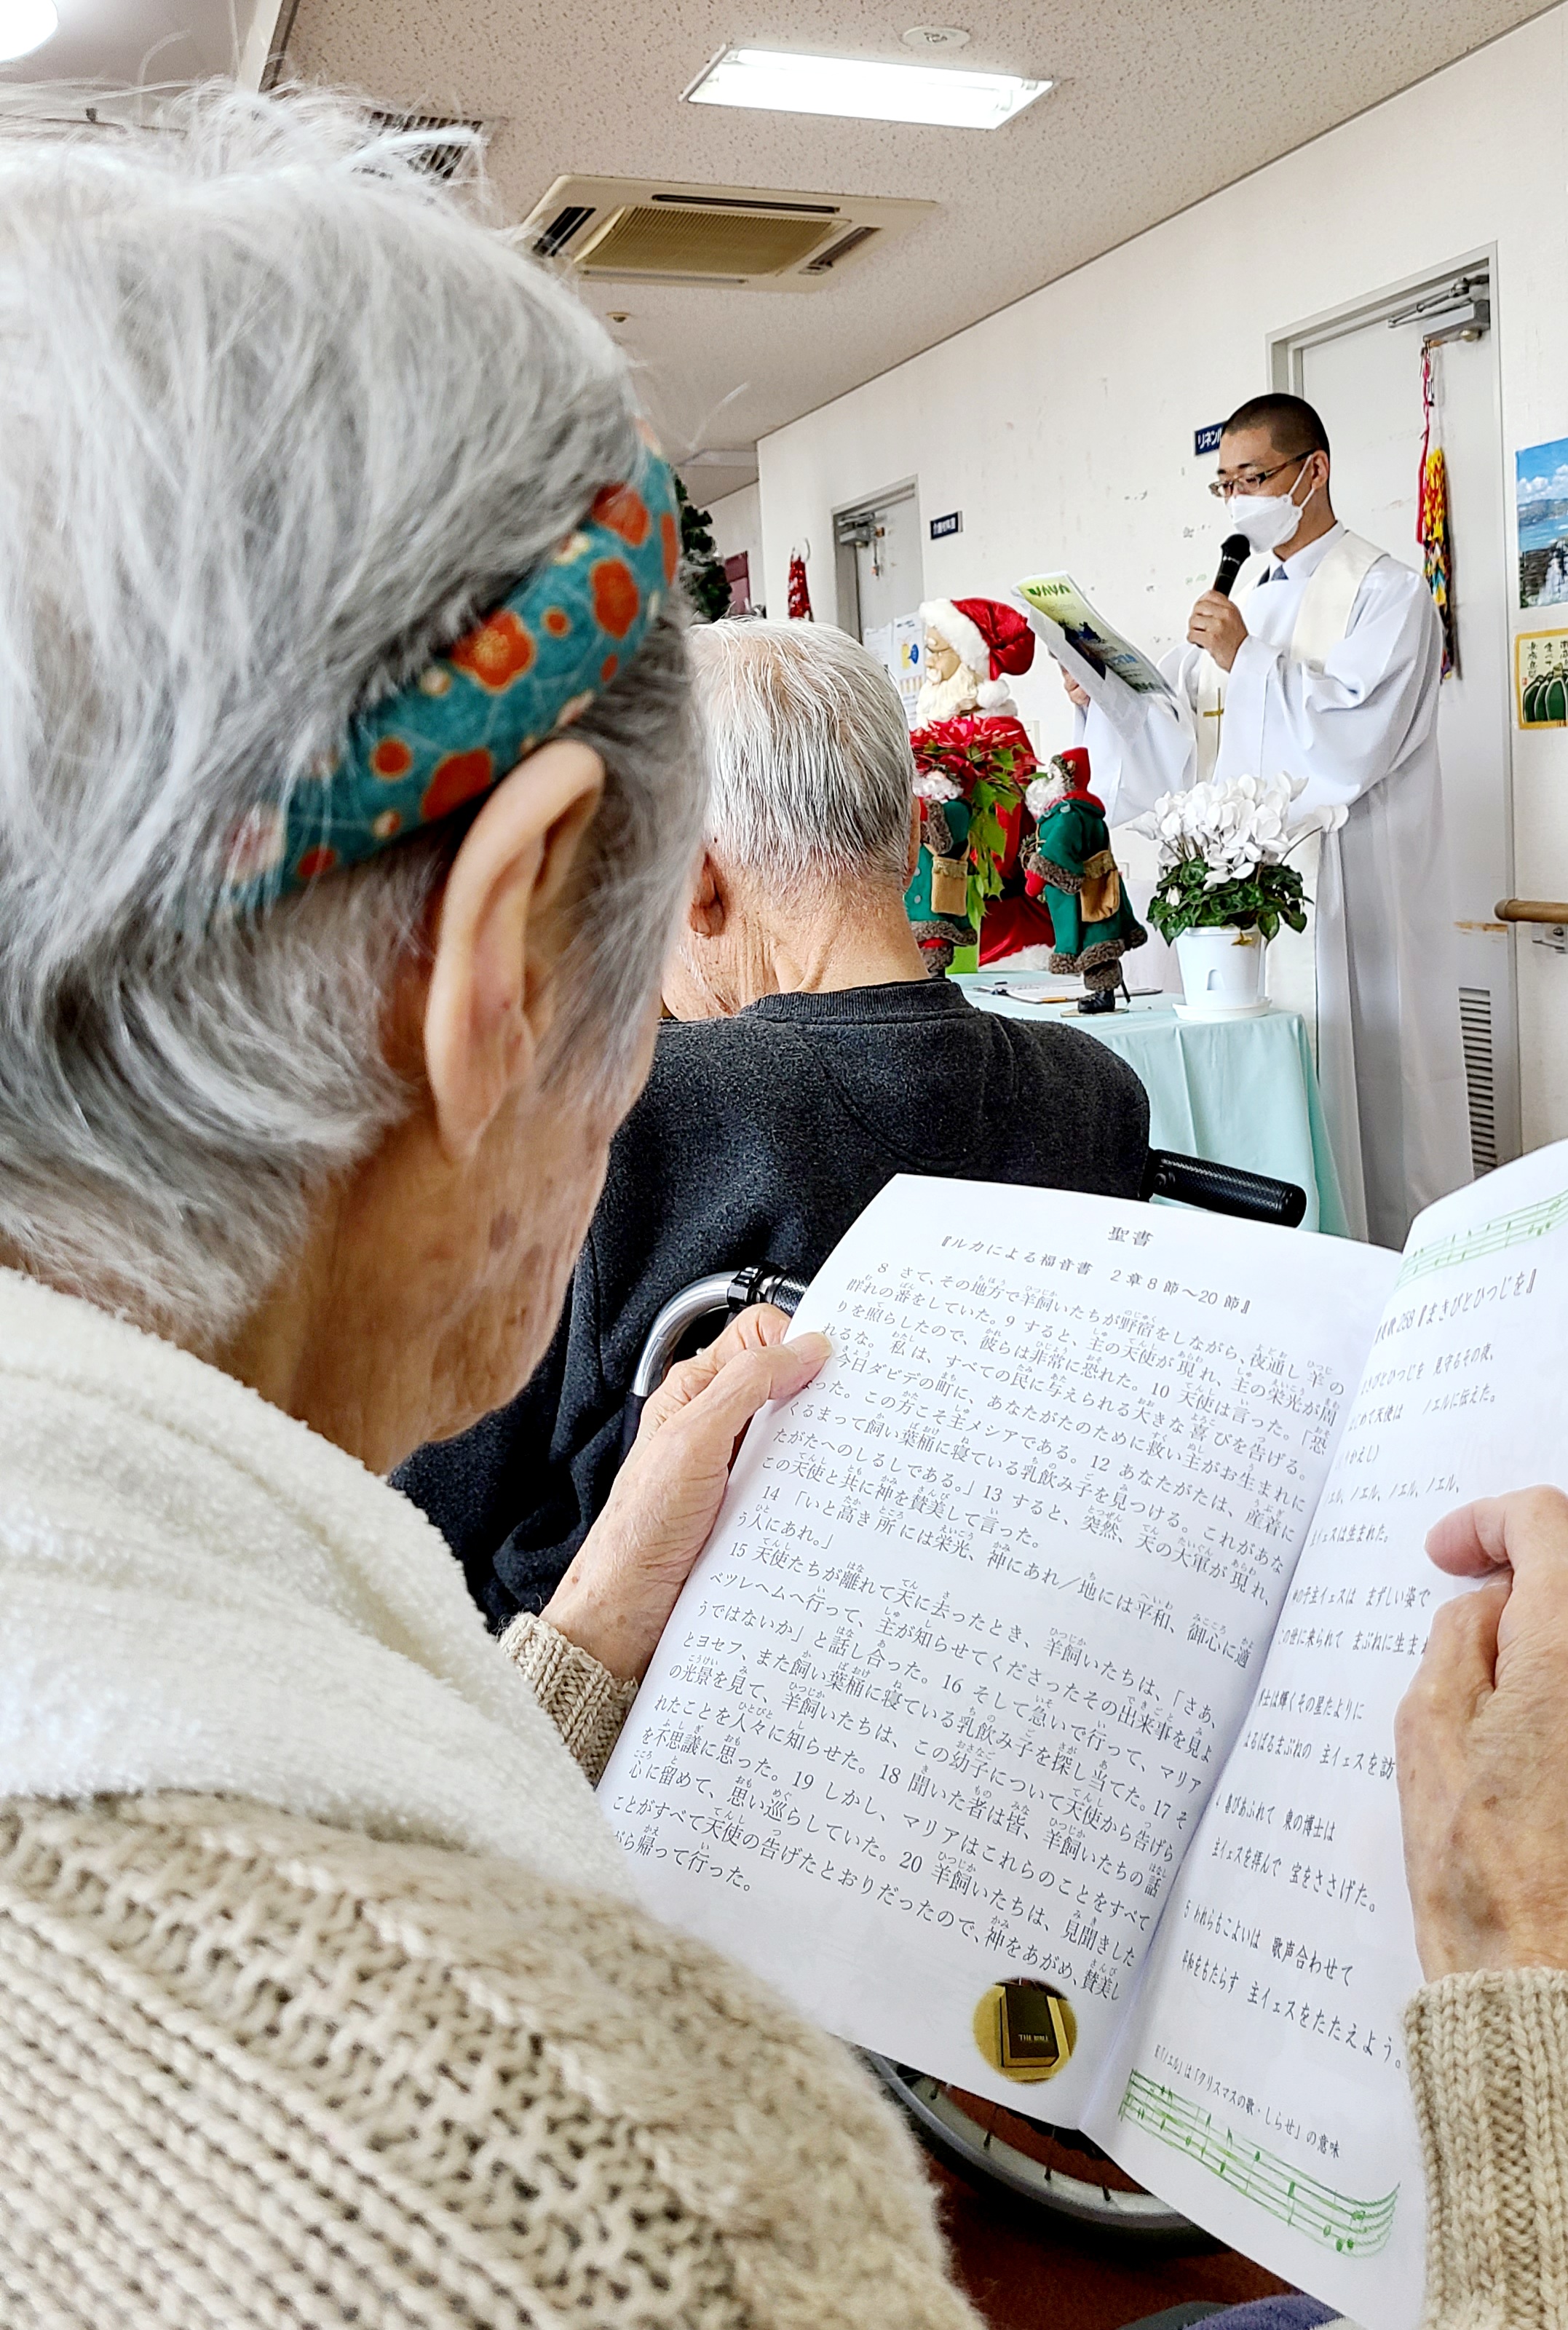 リネン
VIVA
聖書
『ルカによる福音書　2章8節～20節』
8 さて、その地方で羊飼いたちが野宿をしながら、夜通し羊の
群れの番をしていた。9 すると、主の天使が現れ、主の栄光が周
りを照らしたので、彼らは非常に恐れた。10 天使は言った。「恐
れるな。私は、すべての民に与えられる大きな喜びを告げる。
今日ダビデの町に、あなたがたのために救い主がお生まれに
った。この方こそ主メシアである。12 あなたがたは、産着に
くるまって飼い葉桶に寝ている乳飲み子を見つける。これがあな
たがたへのしるしである。」13 すると、突然、天の大軍が現れ、
この天使と共に神を賛美して言った。
14 「いと高き所には栄光、神にあれ／地には平和、御心に適
う人にあれ。」
15 天使たちが離れて天に去ったとき、羊飼いたちは、「さあ、
ベツレヘムへ行って、主が知らせてくださったその出来事を見よ
うではないか」と話し合った。16 そして急いで行って、マリア
とヨセフ、また飼い葉桶に寝ている乳飲み子を探し当てた。17 そ
の光景を見て、羊飼いたちは、この幼子について天使から告げら
れたことを人々に知らせた。18 聞いた者は皆、羊飼いたちの話
を不思議に思った。19 しかし、マリアはこれらのことをすべて
心に留めて、思い巡らしていた。20 羊飼いたちは、見聞きした
ことがすべて天使の告げたとおりだったので、神をあがめ、賛美し
がら帰って行った。
THE BIBLE
258『まきびとひつじを』
きびとひつじを　見守るその夜、
天使は　ノエルに伝えた。
かえし）
エル、ノエル、ノエル、ノエル、
主イエスは生まれた。
の子主イエスは　まずしい姿で
この世に来られて　まぶねに生ま
士は輝くその星たよりに
はるばるまぶねの　主イエスを訪
喜びあふれて　東の博士は
主イエスを拝んで　宝をささげた。
5 われらもこよいは　歌声合わせて
平和をもたらす　主イエスをたたえよう。
「ノエル」は「クリスマスの歌・しらせ」の意味